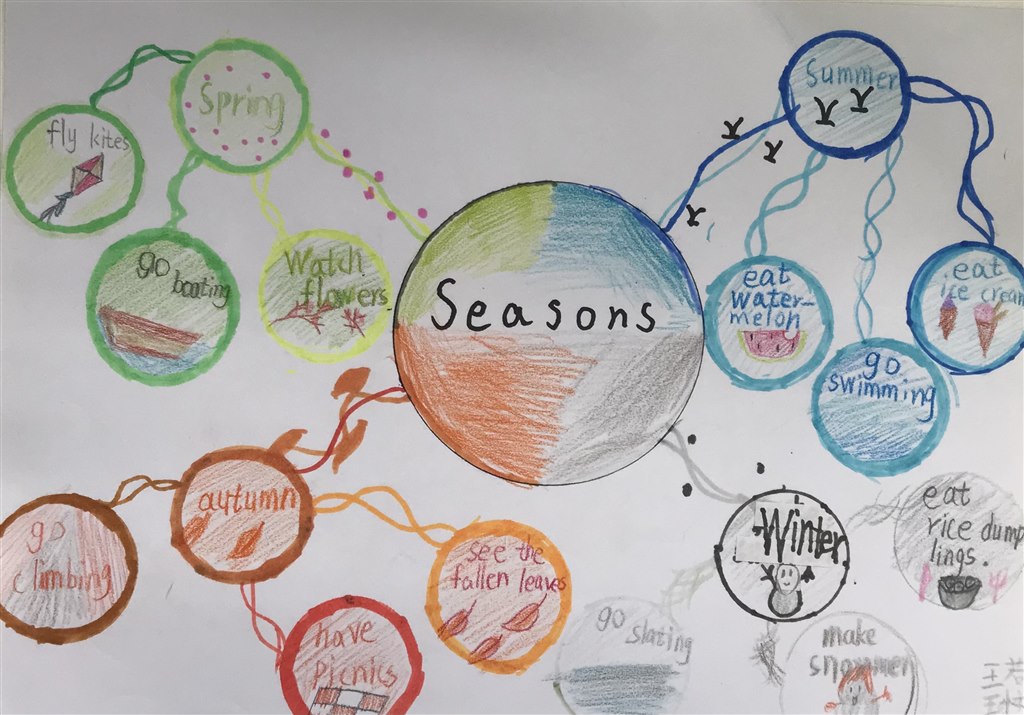 Seasons
Spring
fly kites
go
boating
Watch
flowers
Summer
eat
water-
melon
go
swimming
eat
ice cream
autumn
go
climbing
have
picnics
see the
fallen leaves
Winter
go
slating
make
snowmen
eat
rice dump
lings.
王